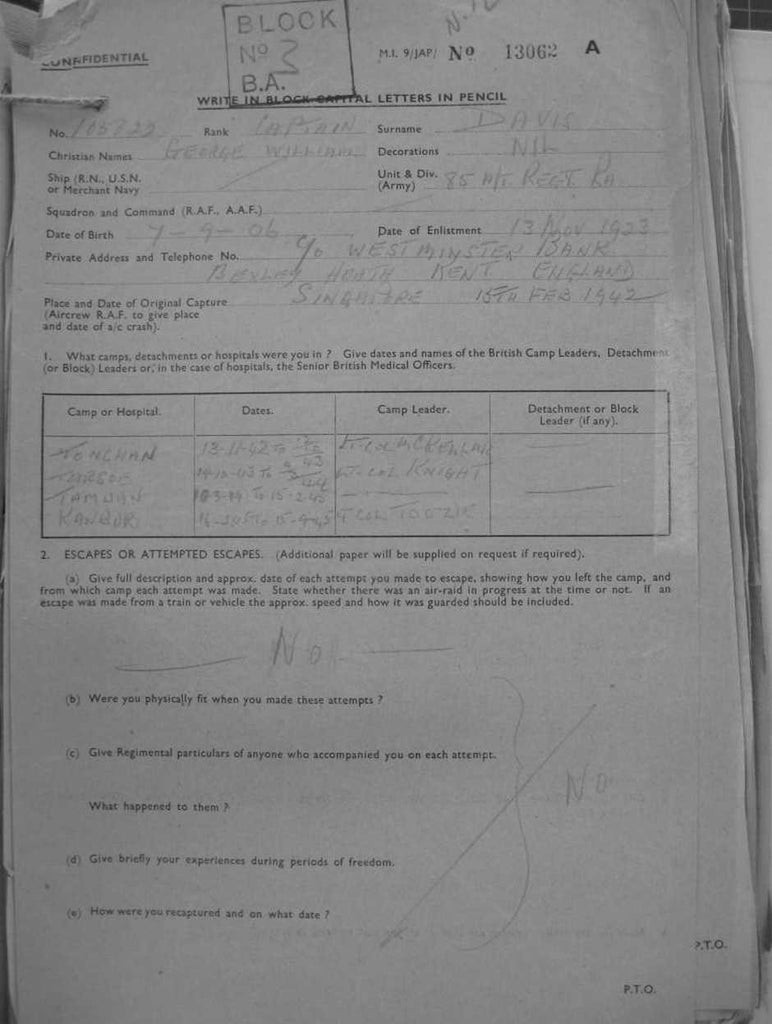 BLOCK
No 3
B.A.
CONFIDENTIAL
M.I. 9/JAP/ No 13062 A
WRITE IN BLOCK CAPITAL LETTERS IN PENCIL
No. Rank CAPTAIN Surname DAVIS
Christian Names GEORGE WILLIAM Decorations NIL
Ship (R.N., U.S.N. or Merchant Navy Unit & Div. (Army) 85 A/T. REGT. RA.
Squadron and Command (R.A.F., A.A.F.)
Date of Birth 7-9-06 Date of Enlistment 13 NOV 1923
Private Address and Telephone No. C/o WESTMINSTER BANK
BEXLEY HEATH KENT ENGLAND
Place and Date of Original Capture SINGAPORE 15TH FEB 1942
(Aircrew R.A.F. to give place
and date of a/c crash).
1. What camps, detachments or hospitals were you in ? Give dates and names of the British Camp Leaders, Detachment
(or Block) Leaders or, in the case of hospitals, the Senior British Medical Officers.
Camp or Hospital. Dates. Camp Leader. Detachment or Block Leader (if any).
TONCHAN 13-11-42 TO LT. COL McKELLAR
LT. COL KNIGHT
TAMUAN TO 15-2-45
KANBURI LT COL TOOZIE
2. ESCAPES OR ATTEMPTED ESCAPES. (Additional paper will be supplied on request if required).
(a) Give full description and approx. date of each attempt you made to escape, showing how you left the camp, and
from which camp each attempt was made. State whether there was an air-raid in progress at the time or not. If an
escape was made from a train or vehicle the approx. speed and how it was guarded should be included.
No
(b) Were you physically fit when you made these attempts ?
(c) Give Regimental particulars of anyone who accompanied you on each attempt.
No
What happened to them ?
(d) Give briefly your experiences during periods of freedom.
(e) How were you recaptured and on what date ?
P.T.O.
P.T.O.